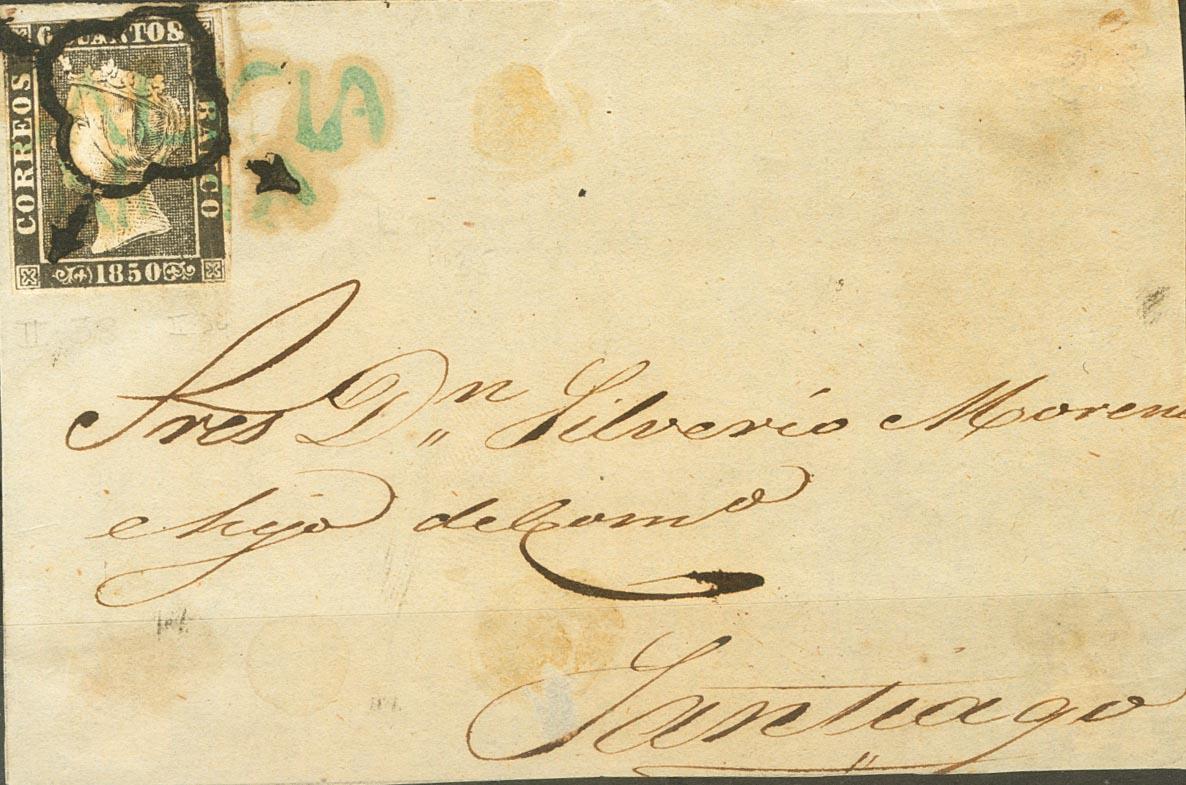 6 CUANTOS
CORREOS
FRANCO
1850
CIA
II 38
Sres Dn Silverio Moreno
e hijo del Como
Santiago